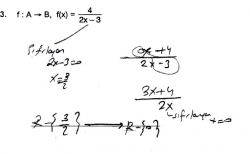 3. f : A → B, f(x) = 4 / (2x − 3)
Sıfırlayan
2x-3=0
x=3/2
0x+4 / 2x-3
3x+4 / 2x
sıfırlayan x=0
R-{3/2} → R-{0}